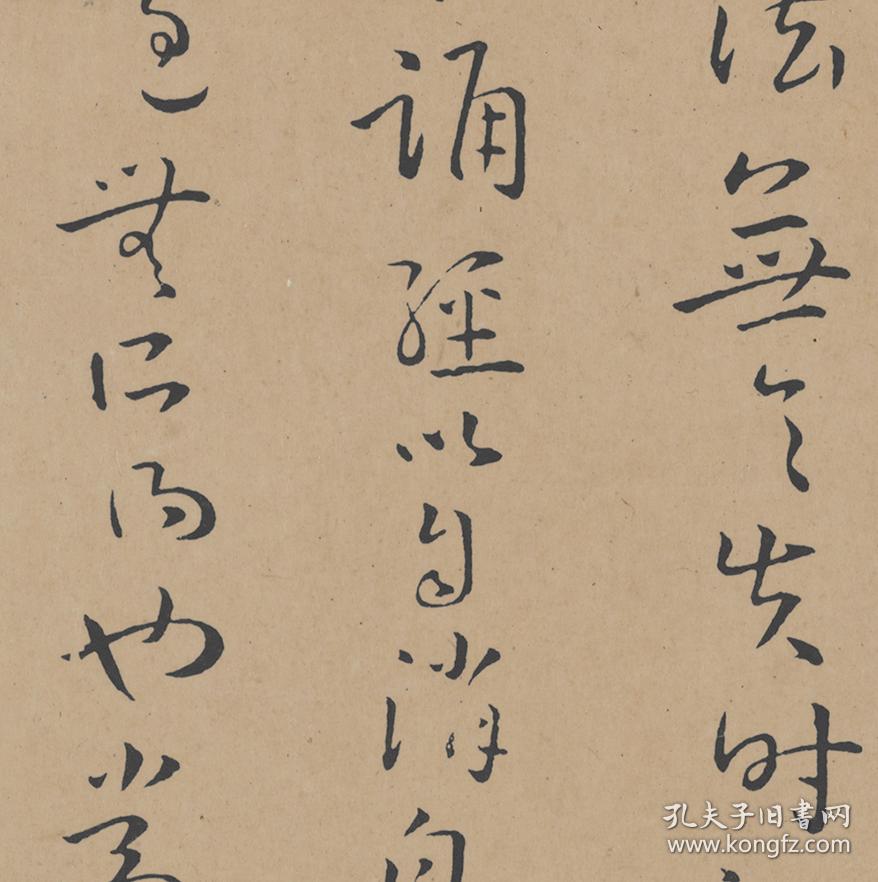 法無令失時
誦經以自消息
過無所得也當
孔夫子旧書网
www.kongfz.com